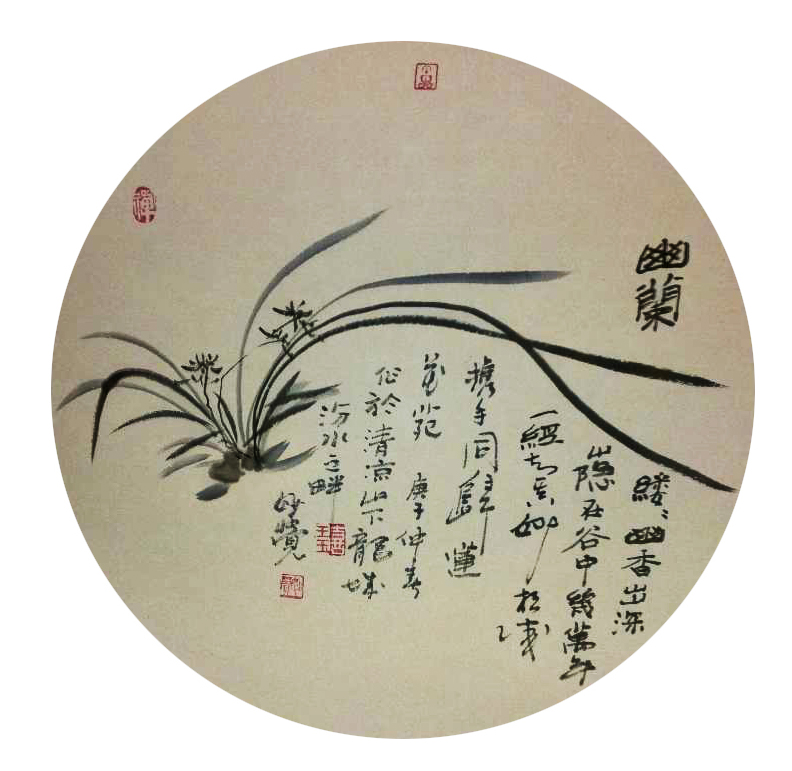 幽蘭
縷々幽香出深
山隱在谷中幾萬年
一經知音
攜手同歸蓮
花苑 庚子仲春
作於清凉山下龍城
汾水之畔
妙覺